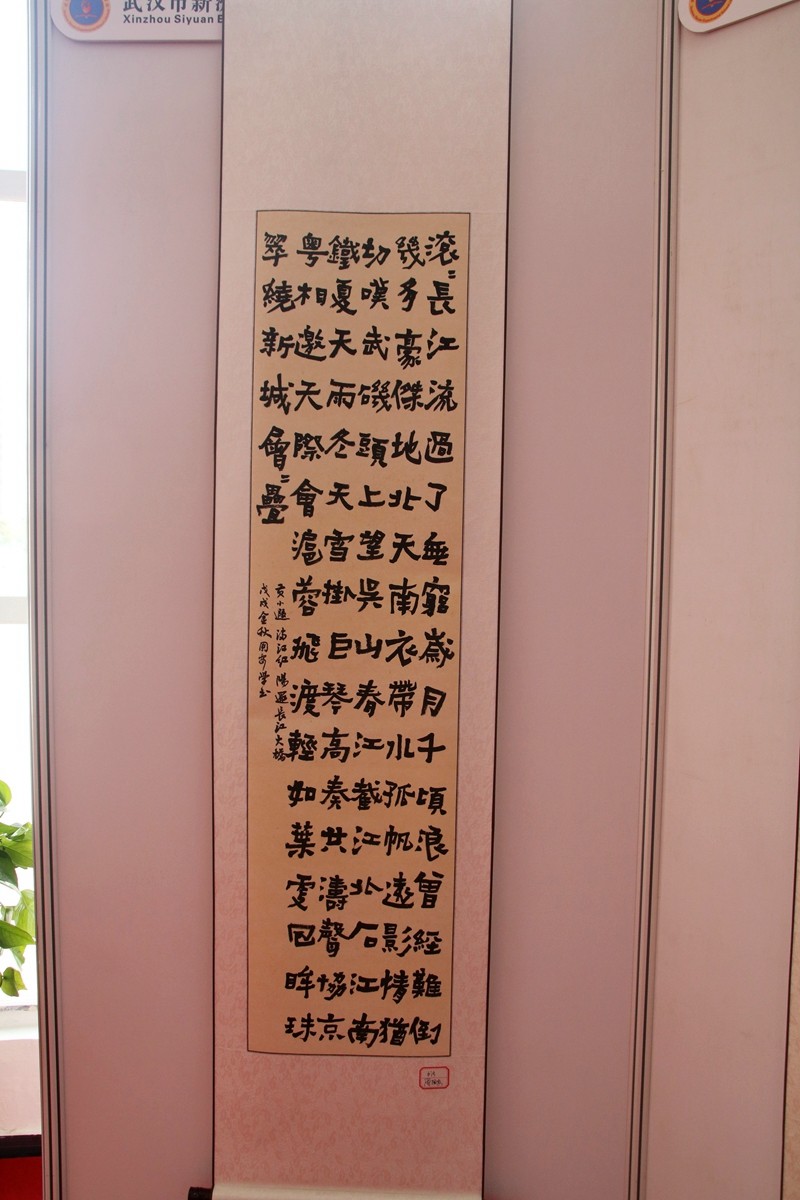 武汉市新
Xinzhou Siyuan
滚〻長江流過了無窮歲月千頃浪曾經難倒
幾多豪傑地北天南衣帶水孤帆遠影情猶
切嘆武磯頭上望吳山春江截江北石江南
鐵夏天雨冬天雪掛巨琴高奏共濤聲協京
粵相邀天際會滬蓉飛渡輕如葉回眸珠
翠繞新城層〻疊
小遐滿江紅陽邏長江大橋
戊戌金秋周學書